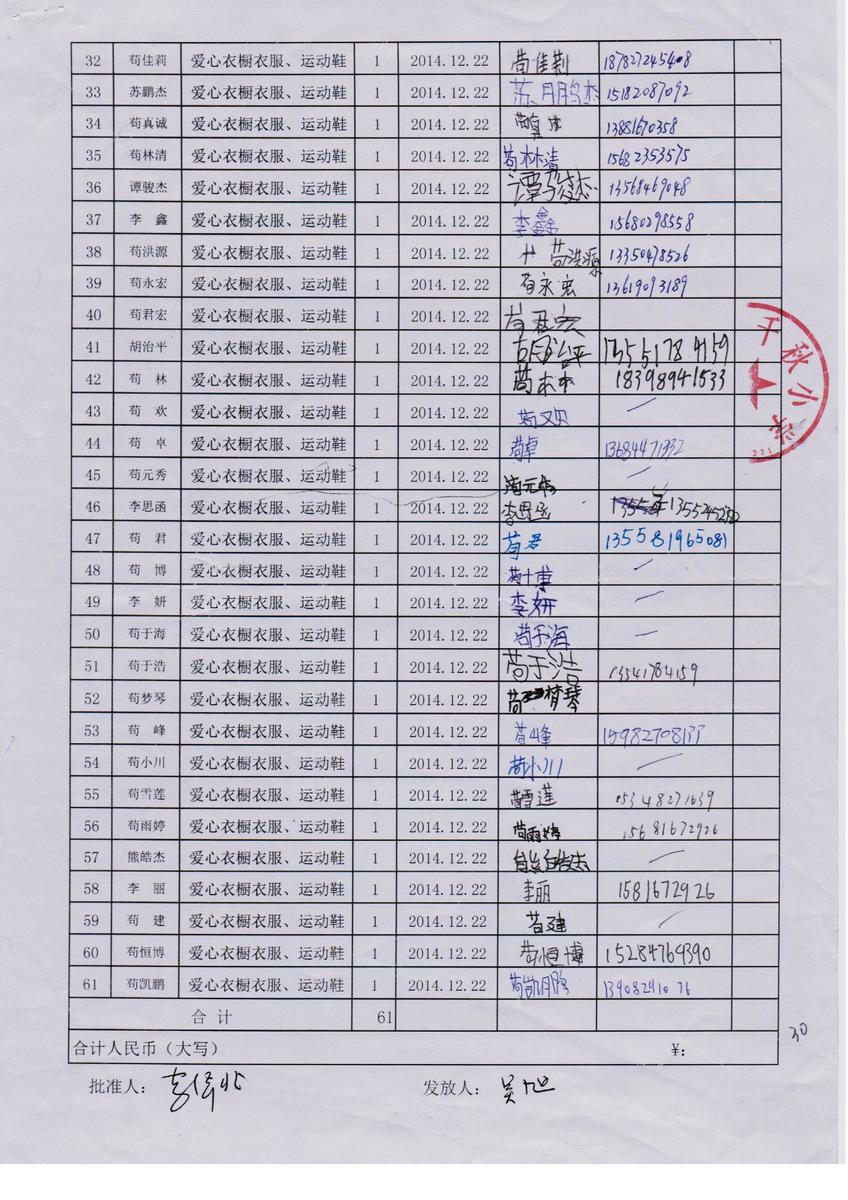 32 苟佳莉 爱心衣橱衣服、运动鞋 1 2014.12.22 苟佳莉 187827245408
33 苏鹏杰 爱心衣橱衣服、运动鞋 1 2014.12.22 苏鹏杰 15182087092
34 苟真诚 爱心衣橱衣服、运动鞋 1 2014.12.22 13881670358
35 苟林清 爱心衣橱衣服、运动鞋 1 2014.12.22 苟林清 15682353575
36 谭骏杰 爱心衣橱衣服、运动鞋 1 2014.12.22 谭骏杰 13568469048
37 李 鑫 爱心衣橱衣服、运动鞋 1 2014.12.22 李鑫 15680298558
38 苟洪源 爱心衣橱衣服、运动鞋 1 2014.12.22 苟洪源 13350478526
39 苟永宏 爱心衣橱衣服、运动鞋 1 2014.12.22 苟永宏 13619093189
40 苟君宏 爱心衣橱衣服、运动鞋 1 2014.12.22 苟君宏
41 胡治平 爱心衣橱衣服、运动鞋 1 2014.12.22 胡治平 13551784159
42 苟 林 爱心衣橱衣服、运动鞋 1 2014.12.22 苟林 18398941533
43 苟 欢 爱心衣橱衣服、运动鞋 1 2014.12.22 苟欢
44 苟 卓 爱心衣橱衣服、运动鞋 1 2014.12.22 苟卓
45 苟元秀 爱心衣橱衣服、运动鞋 1 2014.12.22 苟元秀
46 李思函 爱心衣橱衣服、运动鞋 1 2014.12.22 李思函
47 苟 君 爱心衣橱衣服、运动鞋 1 2014.12.22 苟君 135581965081
48 苟 博 爱心衣橱衣服、运动鞋 1 2014.12.22 苟博
49 李 妍 爱心衣橱衣服、运动鞋 1 2014.12.22 李妍
50 苟于海 爱心衣橱衣服、运动鞋 1 2014.12.22 苟于海
51 苟于浩 爱心衣橱衣服、运动鞋 1 2014.12.22 苟于浩 13541784159
52 苟梦琴 爱心衣橱衣服、运动鞋 1 2014.12.22 苟梦琴
53 苟 峰 爱心衣橱衣服、运动鞋 1 2014.12.22 苟峰
54 苟小川 爱心衣橱衣服、运动鞋 1 2014.12.22 苟小川
55 苟雪莲 爱心衣橱衣服、运动鞋 1 2014.12.22 苟雪莲 15348271639
56 苟雨婷 爱心衣橱衣服、运动鞋 1 2014.12.22 苟雨婷 15681672926
57 熊皓杰 爱心衣橱衣服、运动鞋 1 2014.12.22 熊皓杰
58 李 丽 爱心衣橱衣服、运动鞋 1 2014.12.22 李丽 1581672926
59 苟 建 爱心衣橱衣服、运动鞋 1 2014.12.22 苟建
60 苟恒博 爱心衣橱衣服、运动鞋 1 2014.12.22 苟恒博 15284764390
61 苟凯鹏 爱心衣橱衣服、运动鞋 1 2014.12.22 苟凯鹏 13908291076
合 计 61
合计人民币（大写） ¥：
批准人： 发放人： 吴旭
30
千秋小学
221